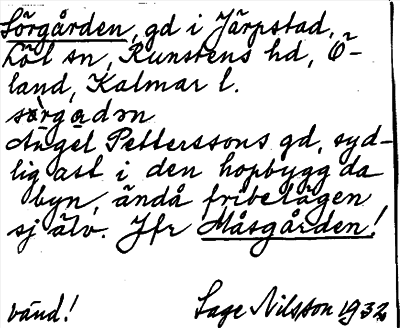 Sörgården, gd i Järpstad,
Löt sn, Runstens hd, Ö-
land, Kalmar l.
sörgadən
Angel Petterssons gd, syd-
ligast i den hopbyggda
byn, ändå fribelägen
själv. Jfr Måsgården!
vänd! Sage Nilsson 1932